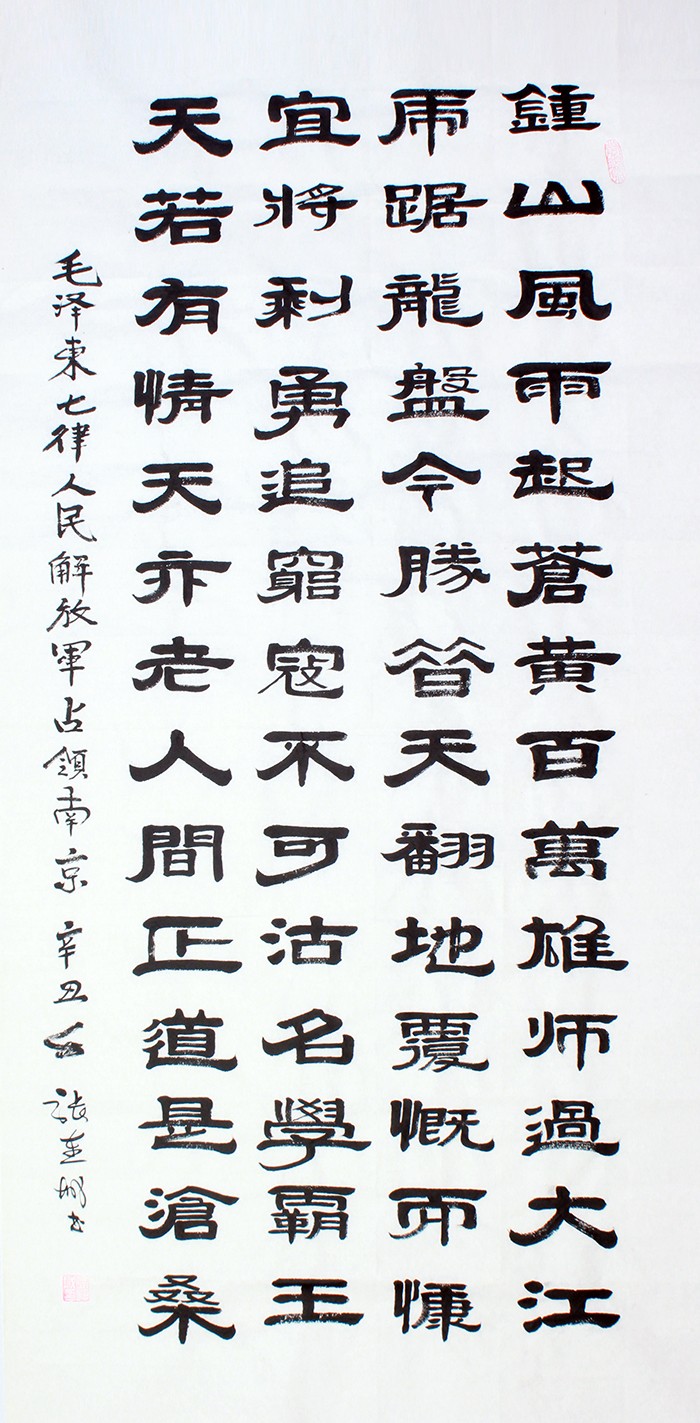 鍾山風雨起蒼黃百萬雄师過大江
虎踞龍盤今勝昔天翻地覆慨而慷
宜將剩勇追窮寇不可沽名學霸王
天若有情天亦老人間正道是滄桑
毛泽東七律人民解放軍占領南京 辛丑 張